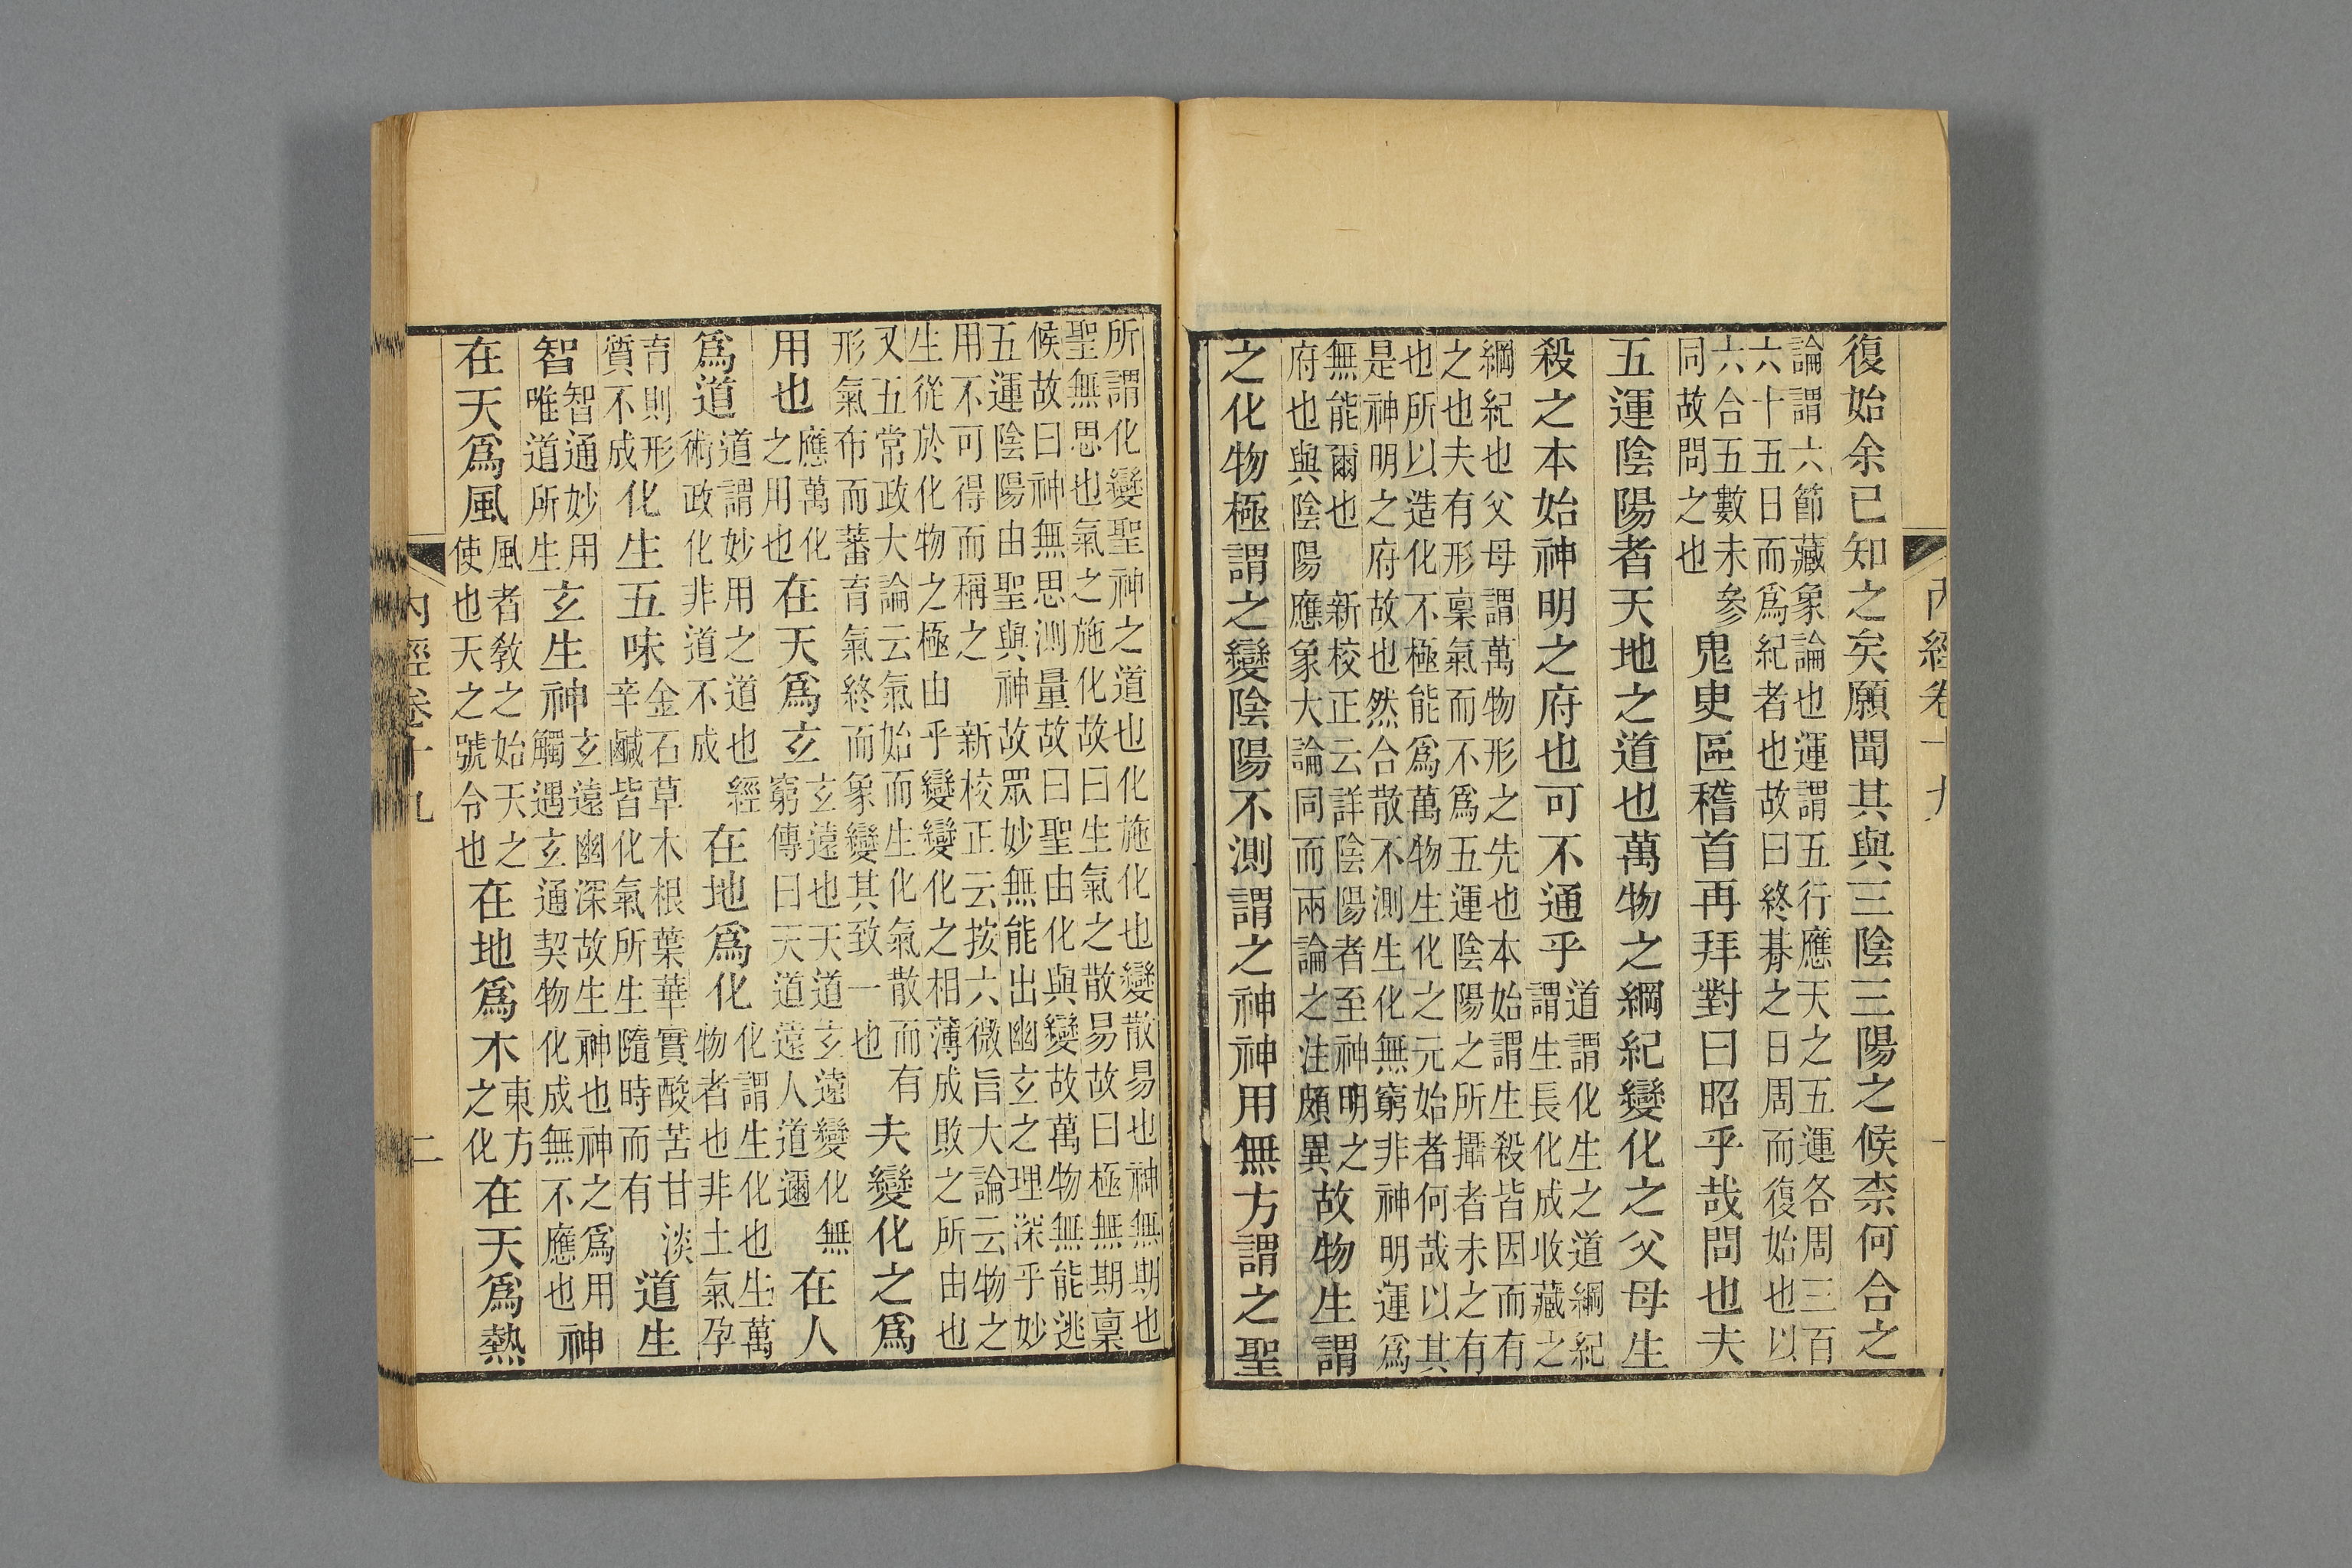 内經卷十九
復始余已知之矣願聞其與三陰三陽之候柰何合之
論謂六節藏象論也運謂五行應天之五運各周三百
六十五日而爲紀者也故曰終朞之日周而復始也以
六合五數未參
同故問之也
鬼臾區稽首再拜對曰昭乎哉問也夫
五運陰陽者天地之道也萬物之綱紀變化之父母生
殺之本始神明之府也可不通乎
道謂化生之道綱紀
謂生長化成收藏之
綱紀也父母謂萬物形之先也本始謂生殺皆因而有
之也夫有形稟氣而不爲五運陰陽之所攝者未之有
也所以造化不極能爲萬物生化之元始者何哉以其
是神明之府故也然合散不測生化無窮非神明運爲
無能爾也　新校正云詳陰陽者至神明之
府也與陰陽應象大論同而兩論之注頗異
故物生謂
之化物極謂之變陰陽不測謂之神神用無方謂之聖
所謂化變聖神之道也化施化也變散易也神無期也
聖無思也氣之施化故曰生氣之散易故曰極無期稟
候故曰神無思測量故曰聖由化與變故萬物無能逃
五運陰陽由聖與神故眾妙無能出幽玄之理深乎妙
用不可得而稱之　新校正云按六微旨大論云物之
生從於化物之極由乎變變化之相薄成敗之所由也
又五常政大論云氣始而生化氣散而有
形氣布而蕃育氣終而象變其致一也
夫變化之爲
用也
應萬化
之用也
在天爲玄
玄遠也天道玄遠變化無
窮傳曰天道遠人道邇
在人
爲道
道謂妙用之道也經
術政化非道不成
在地爲化
化謂生化也生萬
物者也非土氣孕
育則形
質不成
化生五味
金石草木根葉華實酸苦甘淡
辛鹹皆化氣所生隨時而有
道生
智
智通妙用
唯道所生
玄生神
玄遠幽深故生神也神之爲用
觸遇玄通契物化成無不應也
神
在天爲風
風者敎之始天之
使也天之號令也
在地爲木
東方
之化
在天爲熱
内經卷十九
二